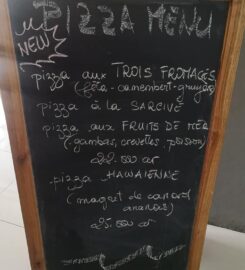 PIZZA MENU
NEW
pizza aux TROIS FROMAGES
(féta-camembert-gruyère)
pizza à la SARCIVE
pizza aux FRUITS DE MER
(gambas, crevettes, poisson)
28.500 ar
pizza HAWAIENNE
(magret de canard
ananas)
25.500 ar